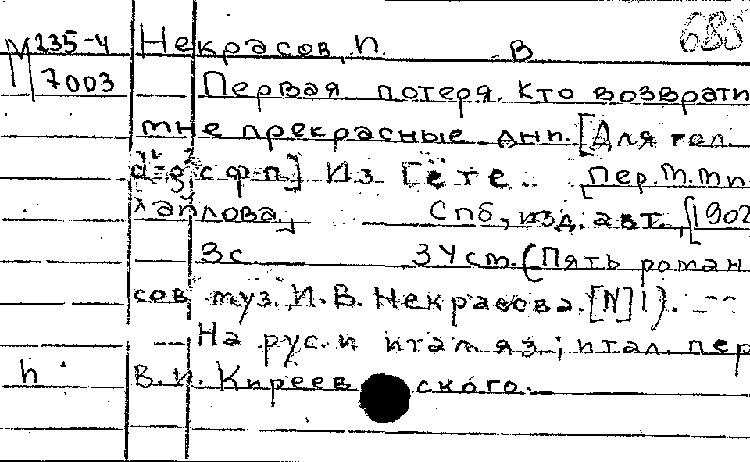 685
М 235-4 Некрасов, И. В
7003 Первая потеря. Кто возврати
мне прекрасные дни. [Для гол.
d¹-g² с ф-п] Из Гёте.. [Пер. М. Ми
хайлова] Спб, изд. авт., [1902
3с 34см. (Пять роман
сов муз. И. В. Некрасова. [N] 1). --
На рус. и итал яз.; итал. пер
н В. И. Киреев ского.